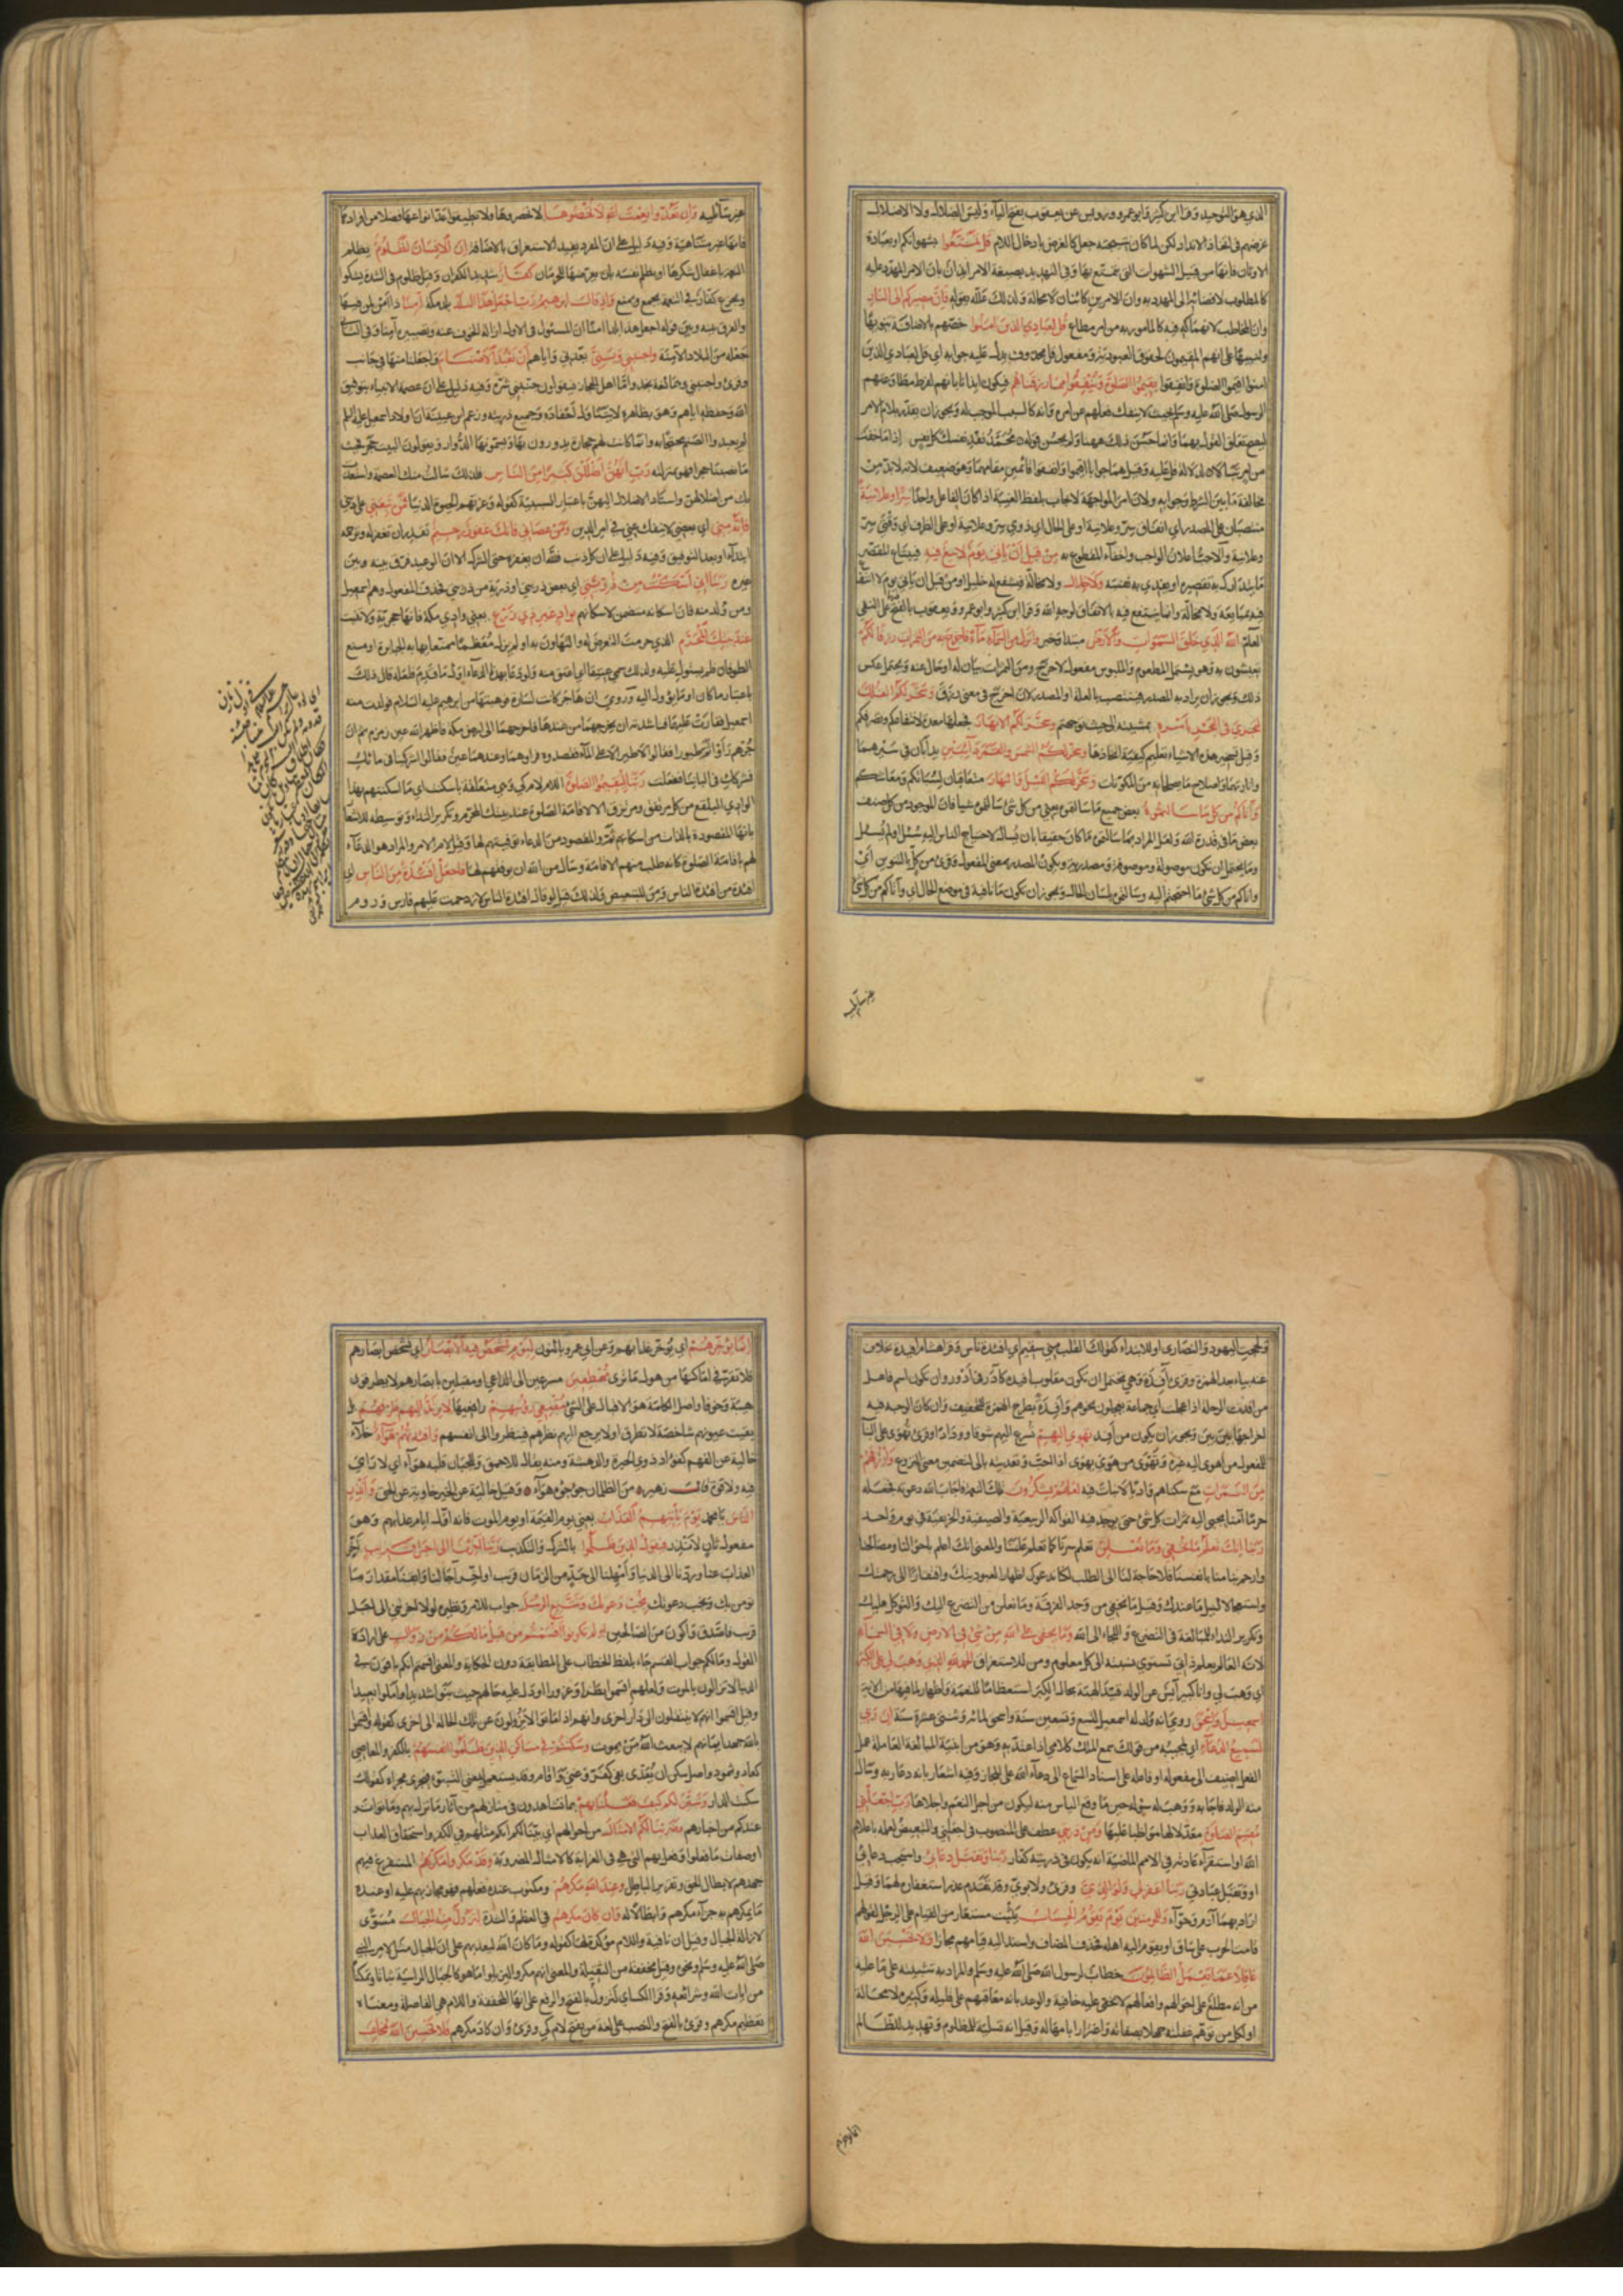 الذي هو التوحيد وقرا ابن كثير وابو عمرو ورويس عن يعقوب بفتح الياء وليس الضلال ولا الاضلال
غرضهم في اتخاذ الانداد لكن لما كان نتيجته جعل كالغرض بادخال اللام قل تمتعوا بشهواتكم او بعبادة
الاوثان فانها من قبيل الشهوات التي يتمتع بها وفي التهديد بصيغة الامر ايذان بان الامر المهدد عليه
كالمطلوب لافضائه الى المهدد به وان الامرين كائنان لا محالة ولذلك علله بقوله فان مصيركم الى النار
وان المخاطب لانهماكه فيه كالمامور به من امر مطاع قل لعبادي الذين امنوا خصهم بالاضافة تنويها
وتنبيها على انهم المقيمون لحقوق العبودية ومفعول قل محذوف يدل عليه جوابه اي قل لعبادي الذين
امنوا اقيموا الصلوة وانفقوا يقيموا الصلوة وينفقوا مما رزقناهم فيكون ايذانا بانهم لفرط مطاوعتهم
الرسول صلى الله عليه وسلم بحيث لا ينفك فعلهم عن امره وانه كالسبب الموجب له ويجوز ان يقدر بلام الامر
ليصح تعلق القول بهما وانما حسن ذلك ههنا ولم يحسن قوله محمد تفد نفسك كل نفس اذا ما خفت
من امر تبالا لدلالة قل عليه وقيل هما جوابا اقيموا وانفقوا قائمين مقامهما وهو ضعيف لانه لا بد من
مخالفة ما بين الشرط وجوابه ولان امر المواجهة لا يجاب بلفظ الغيبة اذا كان الفاعل واحدا سرا وعلانية
منتصبان على المصدر اي انفاق سر وعلانية او على الحال اي ذوي سر وعلانية او على الظرف اي وقتي سر
وعلانية والاحب اعلان الواجب واخفاء المتطوع به من قبل ان ياتي يوم لا بيع فيه فيبتاع المقصر
ما يتدارك به تقصيره او يفدي به نفسه ولا خلال ولا مخالة فيشفع له خليل او من قبل ان ياتي يوم لا انتفاع
فيه بمبايعة ولا مخالة وانما ينتفع فيه بالانفاق لوجه الله وقرا ابن كثير وابو عمرو ويعقوب بالفتح على النفي
العام الله الذي خلق السموات والارض مبتدا وخبر وانزل من السماء ماء فاخرج به من الثمرات رزقا لكم
تعيشون به وهو يشمل المطعوم والملبوس مفعول لاخرج ومن الثمرات بيان له او حال عنه ويحتمل عكس
ذلك ويجوز ان يراد به المصدر فينتصب بالعلة او المصدر لان اخرج في معنى رزق وسخر لكم الفلك
لتجري في البحر بامره بمشيئته الى حيث توجهتم وسخر لكم الانهار فجعلها معدة لانتفاعكم وتصرفكم
وقيل تسخير هذه الاشياء تعليم كيفية اتخاذها وسخر لكم الشمس والقمر دائبين يدأبان في سيرهما
وانارتهما واصلاح ما يصلحانه من المكونات وسخر لكم الليل والنهار يتعاقبان لسباتكم ومعاشكم
واتاكم من كل ما سالتموه بعض جميع ما سالتموه يعني من كل شئ سالتموه شيا فان الموجود من كل صنف
بعض ما في قدرة الله ولعل المراد بما سالتموه ما كان حقيقا بان يسال لاحتياج الناس اليه سئل او لم يسئل
وما يحتمل ان يكون موصولة وموصوفة ومصدرية ويكون المصدر بمعنى المفعول وقرئ من كل بالتنوين اي
واتاكم من كل شئ ما احتجتم اليه وسالتموه بلسان الحال ويجوز ان تكون ما نافية في موضع الحال اي واتاكم من كل شئ
غير سائليه
غير سائليه وان تعدوا نعمت الله لا تحصوها لا تحصروها ولا تطيقوا عد انواعها فضلا من افرادها
فانها غير متناهية وفيه دليل على ان المفرد يفيد الاستغراق بالاضافة ان الانسان لظلوم يظلم
النعمة باغفال شكرها او يظلم نفسه بان يعرضها للحرمان كفار شديد الكفران وقيل ظلوم في الشدة يشكو
ويجزع كفار في النعمة يجمع ويمنع واذ قال ابرهيم رب اجعل هذا البلد بلد مكة آمنا ذا امن لمن فيها
والفرق بينه وبين قوله اجعل هذا بلدا امنا ان المسئول في الاول ازالة الخوف عنه وتصييره آمنا وفي الثاني
جعله من البلاد الآمنة واجنبني وبني بعدني واياهم ان نعبد الاصنام واجعلنا منها في جانب
وقرئ واجنبني وهما لغة نجد واما اهل الحجاز فيقولون جنبني شره وفيه دليل على ان عصمة الانبياء بتوفيق
الله وحفظه اياهم وهو بظاهره لا يتناول احفاده وجميع ذريته وزعم ابن عيينة ان اولاد اسمعيل عليه السلام
لم يعبدوا الصنم محتجا به وانما كانت لهم حجارة يدورون بها ويسمونها الدوار ويقولون البيت حجر فحيث
ما نصبنا حجرا فهو بمنزلته رب انهن اضللن كثيرا من الناس فلذلك سالت منك العصمة واستعذت
بك من اضلالهن واسناد الاضلال اليهن باعتبار السببية كقوله وغرتهم الحيوة الدنيا فمن تبعني على ديني
فانه مني اي بعضي لا ينفك عني في امر الدين ومن عصاني فانك غفور رحيم تقدر ان تغفر له وترحمه
ابتداء او بعد التوفيق وفيه دليل على ان كل ذنب فلله ان يغفره حتى الشرك الا ان الوعيد فرق بينه وبين
غيره ربنا اني اسكنت من ذريتي اي بعض ذريتي او ذرية من ذريتي فحذف المفعول وهم اسمعيل
ومن ولد منه فان اسكانه متضمن لاسكانهم بواد غير ذي زرع يعني وادي مكة فانها حجرية لا تنبت
عند بيتك المحرم الذي حرمت التعرض له والتهاون به او لم يزل معظما ممتنعا يهابه الجبابرة او منع
الطوفان فلم يستول عليه ولذلك سمي عتيقا اي اعتق منه ولو دعا بهذا الدعاء اول ما قدم فلعله قال ذلك
باعتبار ما كان او ما يؤول اليه وروي ان هاجر كانت لسارة فوهبتها من ابرهيم عليه السلام فولدت منه
اسمعيل فغارت عليهما فناشدته ان يخرجهما من عندها فاخرجهما الى ارض مكة فاظهر الله عين زمزم ثم ان
جرهم رأوا ثم طيورا فقالوا لا طير الا على الماء فقصدوه فراوهما وعندهما عين فقالوا اشركينا في مائك
نشركك في الباننا ففعلت ربنا ليقيموا الصلوة اللام لام كي وهي متعلقة باسكنت اي ما اسكنتهم بهذا
الوادي البلقع من كل مرتفق ومرتزق الا لاقامة الصلوة عند بيتك المحرم وتكرير النداء وتوسيطه للاشعار
بانها المقصودة بالذات من اسكانهم ثم والمقصود من الدعاء توفيقهم لها وقيل لام الامر والمراد هو الدعاء
لهم باقامة الصلوة كانه طلب منهم الاقامة وسال من الله ان يوفقهم لها فاجعل افئدة من الناس اي
افئدة من افئدة الناس ومن للتبعيض ولذلك قيل لو قال افئدة الناس لازدحمت عليهم فارس وروم
ولحجت اليهود والنصارى او للابتداء كقولك القلب مني سقيم اي افئدة ناس وقرا هشام افئيدة بخلاف
عنه بياء بعد الهمزة وقرئ آفدة وهي يحتمل ان تكون مقلوب افئدة كآدر في ادؤر وان تكون اسم فاعل
من افدت الرحلة اذا عجلت اي جماعة يعجلون نحوهم وأفدة بطرح الهمزة للتخفيف وان كان الوجه فيه
اخراجها بين بين ويجوز ان يكون من أفد تهوي اليهم تسرع اليهم شوقا وودادا وقرئ تهوى على البناء
للمفعول من اهوى اليه غيره وتهوى من هوي يهوى اذا احب وتعديته بالى لتضمين معنى النزوع وارزقهم
من الثمرات مع سكناهم واديا لا نبات فيه لعلهم يشكرون تلك النعمة فاجاب الله دعوته فجعله
حرما آمنا يجبى اليه ثمرات كل شئ حتى يوجد فيه الفواكه الربيعية والصيفية والخريفية في يوم واحد
ربنا انك تعلم ما نخفي وما نعلن تعلم سرنا كما تعلم علننا والمعنى انك اعلم باحوالنا ومصالحنا
وارحم بنا منا بانفسنا فلا حاجة لنا الى الطلب لكنا ندعوك اظهارا لعبوديتك وافتقارا الى رحمتك
واستعجالا لنيل ما عندك وقيل ما نخفي من وجد الفرقة وما نعلن من التضرع اليك والتوكل عليك
وتكرير النداء للمبالغة في التضرع واللجاء الى الله وما يخفى على الله من شئ في الارض ولا في السماء
لانه العالم بعلم ذاتي تستوي نسبته الى كل معلوم ومن للاستغراق الحمد لله الذي وهب لي على الكبر
اي وهب لي وانا كبير آيس عن الولد قيد الهبة بحال الكبر استعظاما للنعمة واظهارا لما فيها من الآية
اسمعيل واسحق روي انه ولد له اسمعيل لتسع وتسعين سنة واسحق لمائة وثنتي عشرة سنة ان ربي
لسميع الدعاء اي لمجيبه من قولك سمع الملك كلامي اذا اعتد به وهو من ابنية المبالغة العاملة عمل
الفعل اضيف الى مفعوله او فاعله على اسناد السماع الى دعاء الله على المجاز وفيه اشعار بانه دعا ربه وسال
منه الولد فاجابه ووهب له سؤله حين ما وقع الياس منه ليكون من اجل النعم واجلاها رب اجعلني
مقيم الصلوة معدلا لها مواظبا عليها ومن ذريتي عطف على المنصوب في اجعلني والتبعيض لعلمه باعلام
الله او استقراء عادته في الامم الماضية انه يكون في ذريته كفار ربنا وتقبل دعاء واستجب دعائي
او وتقبل عبادتي ربنا اغفر لي ولوالدي وقرئ ولابوي وقد تقدم عذر استغفاره لهما وقيل
اراد بهما آدم وحواء وللمؤمنين يوم يقوم الحساب يثبت مستعار من القيام على الرجل كقولهم
قامت الحرب على ساق او يقوم اليه اهله فحذف المضاف واسند اليه قيامهم مجازا ولا تحسبن الله
غافلا عما يعمل الظالمون خطاب لرسول الله صلى الله عليه وسلم والمراد به تثبيته على ما عليه
من انه مطلع على احوالهم وافعالهم لا يخفى عليه خافية والوعيد بانه معاقبهم على قليله وكثيره لا محالة
او لكل من توهم غفلته جهلا بصفاته واغترارا بامهاله وقيل انه تسلية للمظلوم وتهديد للظالم
انما يؤخرهم
انما يؤخرهم اي يؤخر عذابهم وعن ابي عمرو بالنون ليوم تشخص فيه الابصار اي تشخص ابصارهم
فلا تقر في اماكنها من هول ما ترى مهطعين مسرعين الى الداعي او مقبلين بابصارهم لا يطرفون
هيبة وخوفا واصل الكلمة هو الاقبال على الشئ مقنعي رؤسهم رافعيها لا يرتد اليهم طرفهم بل
بقيت عيونهم شاخصة لا تطرف او لا يرجع اليهم نظرهم فينظروا الى انفسهم وافئدتهم هواء خلاء
خالية عن الفهم كقولك ذوي الحيرة والدهشة ومنه يقال للاحمق وللجبان قلبه هواء اي لا راي
فيه ولا قوة قال زهير من الظلمان جؤجؤه هواء وقيل خالية عن الخير خاوية عن الحق وانذر
الناس يا محمد يوم ياتيهم العذاب يعني يوم القيمة او يوم الموت فانه اول ايام عذابهم وهو
مفعول ثان لانذر فيقول الذين ظلموا بالشرك والتكذيب ربنا اخرنا الى اجل قريب اخر
العذاب عنا وردنا الى الدنيا وامهلنا الى حد من الزمان قريب او اخر آجالنا وابقنا مقدار ما
نومن بك ونجيب دعوتك نجب دعوتك ونتبع الرسل جواب للامر ونظيره لولا اخرتني الى اجل
قريب فاصدق واكون من الصالحين اولم تكونوا اقسمتم من قبل ما لكم من زوال على ارادة
القول وما لكم جواب القسم جاء بلفظ الخطاب على المطابقة دون الحكاية والمعنى اقسمتم انكم باقون في
الدنيا لا تزالون بالموت ولعلهم اقسموا بطرا وغرورا او دل عليه حالهم حيث بنوا شديدا واملوا بعيدا
وقيل اقسموا انهم لا ينتقلون الى دار اخرى وانهم اذا ماتوا لا يزولون عن تلك الحالة الى اخرى كقوله واقسموا
بالله جهد ايمانهم لا يبعث الله من يموت وسكنتم في مساكن الذين ظلموا انفسهم بالكفر والمعاصي
كعاد وثمود واصل سكن ان يعدى بفي كقر وغني واقام وقد يستعمل بمعنى التبوء فيجري مجراه كقولك
سكنت الدار وتبين لكم كيف فعلنا بهم بما تشاهدون في منازلهم من آثار ما نزل بهم وما تواتر
عندكم من اخبارهم وضربنا لكم الامثال من احوالهم اي بينا لكم انكم مثلهم في الكفر واستحقاق العذاب
او صفات ما فعلوا وفعل بهم التي هي في الغرابة كالامثال المضروبة وقد مكروا مكرهم المستفرغ فيه
جهدهم لابطال الحق وتقرير الباطل وعند الله مكرهم ومكتوب عنده فعلهم فهو مجازيهم عليه او عنده
ما يمكرهم به جزاء لمكرهم وابطالا له وان كان مكرهم في العظم والشدة لتزول منه الجبال مسوى
لازالة الجبال وقيل ان نافية واللام مؤكدة لها كقوله وما كان الله ليعذبهم على ان الجبال مثل لامر النبي
صلى الله عليه وسلم ونحوه وقيل مخففة من الثقيلة والمعنى انهم مكروا ليزيلوا ما هو كالجبال الراسية ثباتا وتمكنا
من ايات الله وشرائعه وقرا الكسائي لتزول بالفتح والرفع على انها المخففة واللام هي الفاصلة ومعناه
تعظيم مكرهم وقرئ بالفتح والنصب على لغة من يفتح لام كي وقرئ وان كاد مكرهم فلا تحسبن الله مخلف